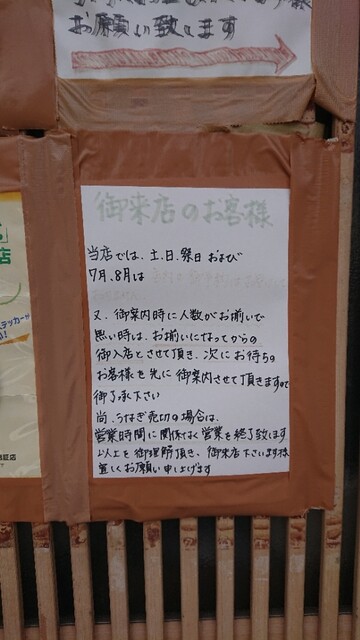 お願い致します
御来店のお客様
当店では、土、日、祭日 および
7月、8月は
又、御案内時に人数がお揃いで
無い時は、お揃いになってからの
御入店とさせて頂き、次にお待ちの
お客様を先に御案内させて頂きますので
御了承下さい
尚、うなぎ売切の場合は、
営業時間に関係なく営業を終了致します
以上を御理解頂き、御来店下さいます様
宜しくお願い申し上げます
店
ステッカーが